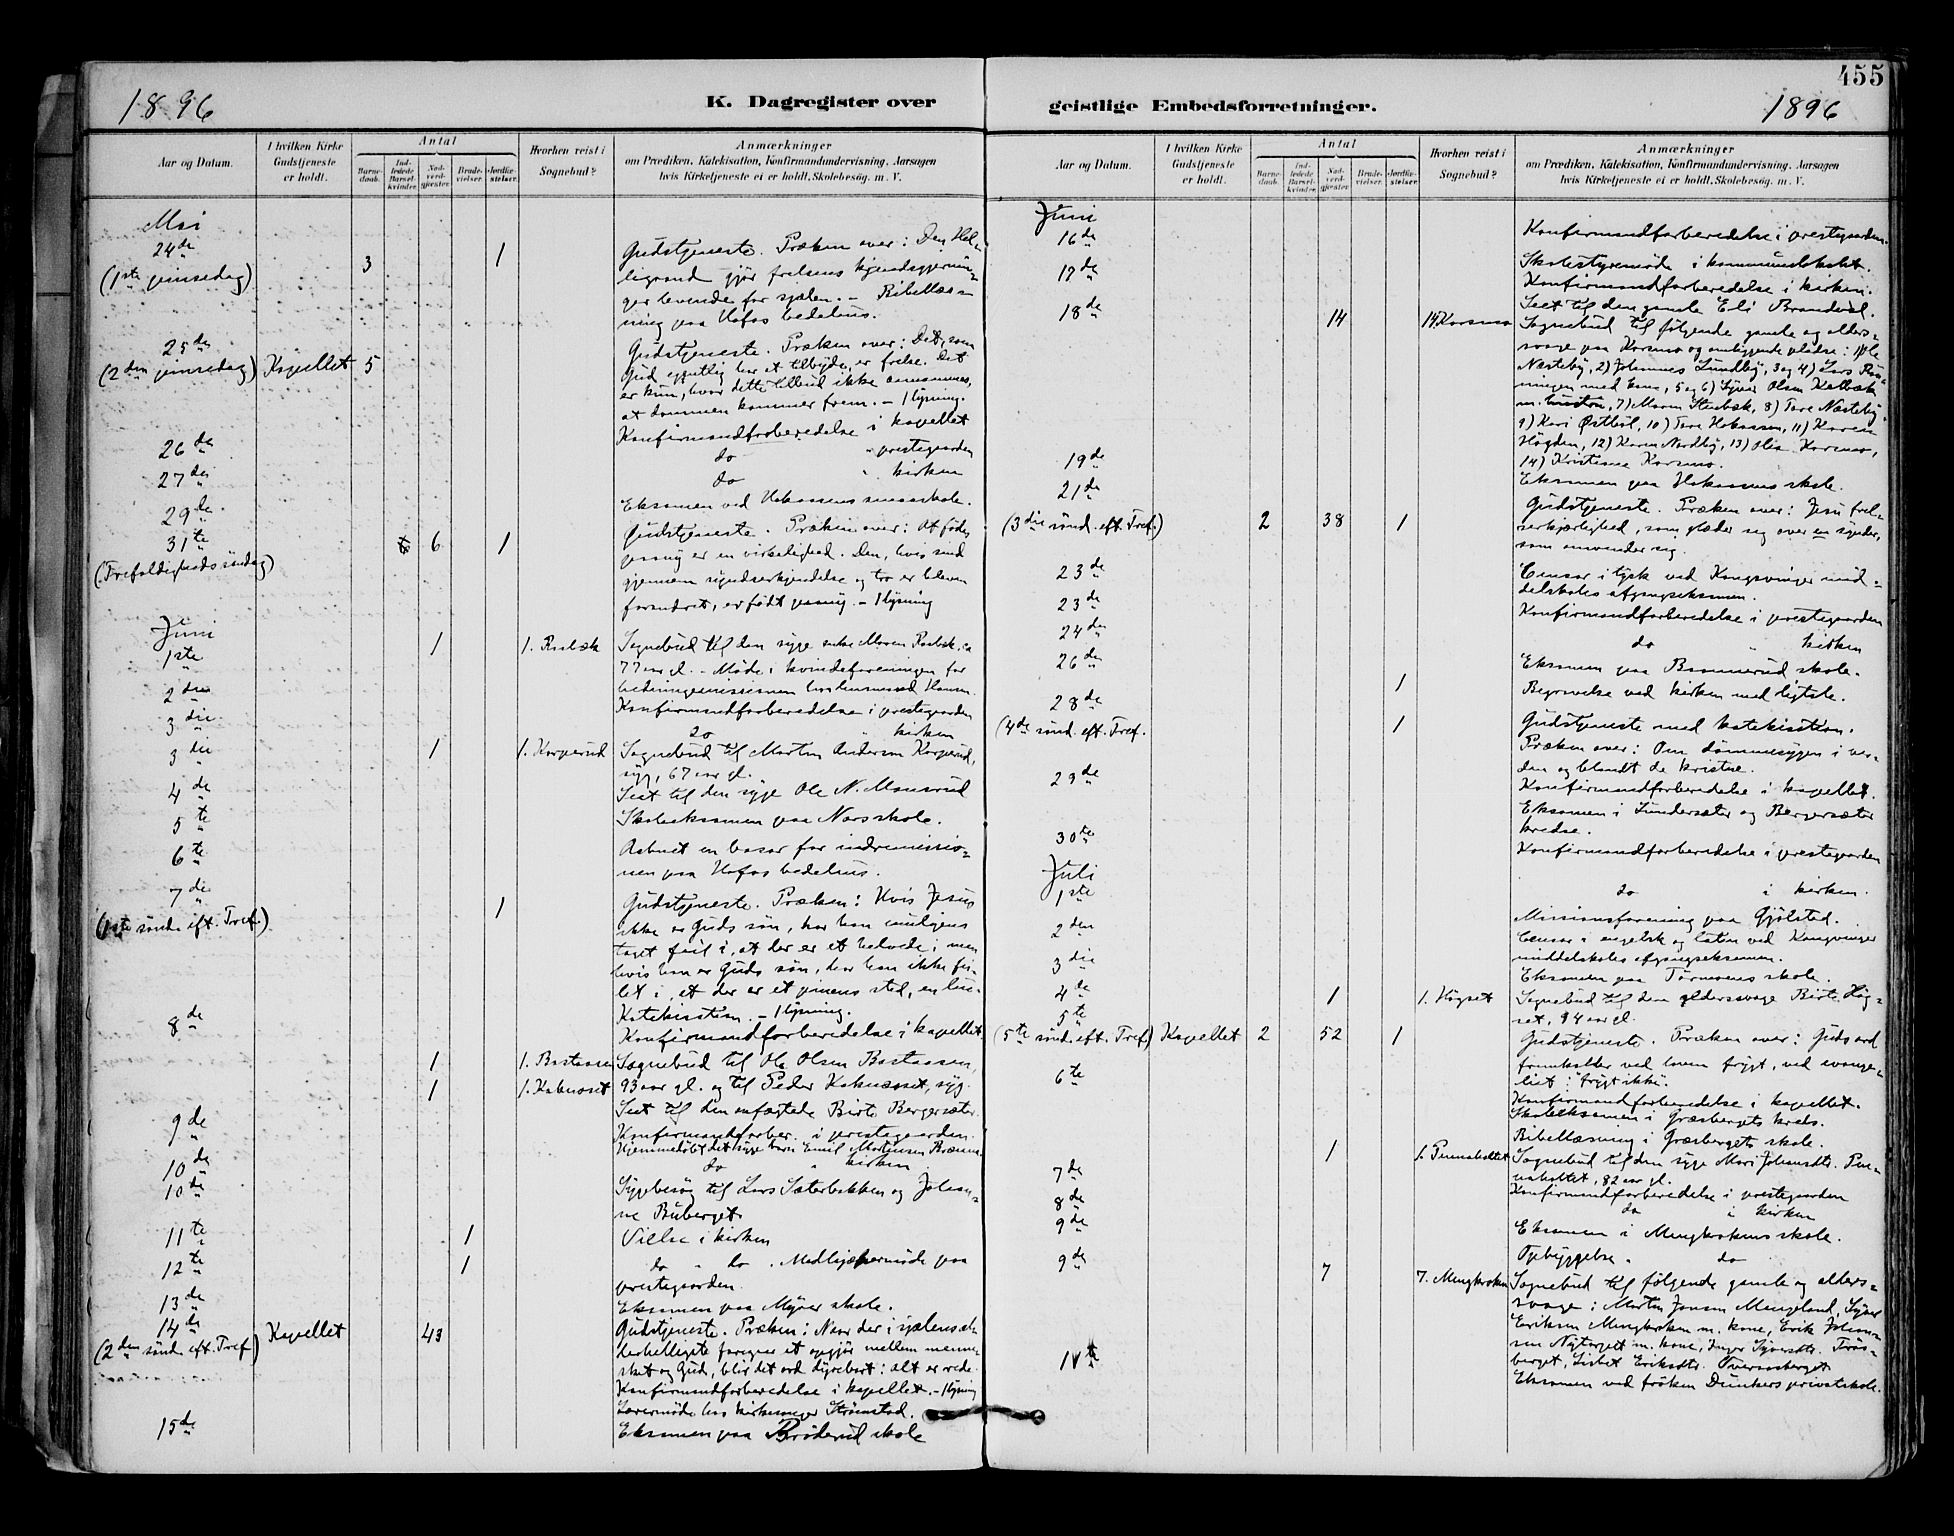 455
1896
K. Dagregister over
geistlige Embedsforretninger.
1896
Aar og Datum.
I hvilken Kirke Gudstjeneste er holdt.
Antal
Barnedaab.
Indledede Barselkvinder.
Nadverdgjester
Brudevielser.
Jordfæstelser.
Hvorhen reist i Sognebud?
Anmærkninger
om Prædiken, Katekisation, Konfirmandundervisning, Aarsagen
hvis Kirketjeneste ei er holdt, Skolebesøg. m. V.
Mai
24de
(1ste pinsedag) 3 1 Gudstjeneste. Præken over: Den Hel-
ligaand gjør frelsens kjendsgjernin-
ger levende for sjælen. – Bibellæs-
ning paa Hofos bedehus.
25de
(2den pinsedag) Kapellet 5 Gudstjeneste. Præken over: Det, som
Gud egentlig har at tilbyde, er frelse. Det
er kun, hvor dette tilbud ikke annammes,
at dommen kommer frem. – 1 lysning.
Konfirmandforberedelse i kapellet
26de do " prestegaarden
27de do " kirken
29de Eksamen ved Hokaasens smaaskole.
31te 6 1 Gudstjeneste. Præken over: At fødes
(Trefoldighedssöndag) paany er en virkelighed. Den, hvis sind
gjennem syndserkjendelse og tro er bleven
forandret, er født paany. – 1 lysning
Juni
1ste 1 1. Rasbæk Sognebud til den syge enke Maren Rasbæk, ca
77 aar gl. – Møde i kvindeforeningen for
hedningemissionen hos lensmand Hansen.
2den Konfirmandforberedelse i prestegaarden
3die do " kirken
3die 1 1. Korperud Sognebud til Martin Andersen Korperud,
syg, 67 aar gl.
4de Seet til den syge Ole N. Monsrud
5te Skoleeksamen paa Nors skole.
6te Aabnet en basar for indremissio-
nen paa Hofos bedehus.
7die
(1ste sönd. eft. Tref.) 1 Gudstjeneste. Præken: Hvis Jesus
ikke er Guds søn, har han muligens
taget feil i, at der er et helvede; men
hvis han er Guds søn, har han ikke fei-
let i, at der er et pinens sted, en lue.
Katekisation. – 1 lysning.
8de Konfirmandforberedelse i kapellet.
1 1. Bastaasen Sognebud til Ole Olsen Bastaasen,
1 1. Kaknæset 93 aar gl. og til Peder Kaknæset, syg.
Seet til den anfægtede Birte Bergersæter.
9de Konfirmandforber. i prestegaarden.
Hjemmedøbt det syge barn Emil Martinsen
10de do " kirken
10de Sygebesøg til Lars Sæterbakken og Johan-
ne Buberget
11te 1 Vielse i kirken
12te 1 do " do . Medhjælpermöde paa
prestegaarden.
13de Eksamen paa Myrer skole.
14de
(2den sönd. eft. Tref) Kapellet 43 Gudstjeneste. Præken: Naar der i sjælens al-
lerhelligste foregaar et opgjør mellem menne-
sket og Gud, blir det ord dyrebart: alt er rede.
Konfirmandforberedelse i kapellet. – 1 lysning
Lærermöde hos kirkesanger Strömstad.
15de Eksamen paa Bröderud skole
Aar og Datum.
I hvilken Kirke Gudstjeneste er holdt.
Antal
Barnedaab.
Indledede Barselkvinder.
Nadverdgjester
Brudevielser.
Jordfæstelser.
Hvorhen reist i Sognebud?
Anmærkninger
om Prædiken, Katekisation, Konfirmandundervisning, Aarsagen
hvis Kirketjeneste ei er holdt, Skolebesøg. m. V.
Juni
16de Konfirmandforberedelse i prestegaarden.
17de Skolestyremøde i kommunelokalet.
Konfirmandforberedelse i kirken.
18de Seet til den gamle Eli Brandval.
14 14 Korsmo Sognebud til følgende gamle og alders-
svage paa Korsmo og omliggende pladse: 1) Ole
Næsteby, 2) Johannes Lundby, 3 og 4) Lars
ningen med kone, 5 og 6) Syver Olsen Kalbæk
m. hustru, 7) Maren Stenbæk, 8) Tore Næsteby
9) Kari Østböl, 10) Tore Hokaasen, 11) Karen
Högden, 12) Karen Nordby, 13) Olia Korsmo,
14) Kristiane Korsmo.
19de Eksamen paa Hokaasens skole.
21de
(3die sönd. eft. Tref.) 2 38 1 Gudstjeneste. Præken over: Jesu frel-
serkjærlighed, som glæder sig over en synder,
som omvender sig.
23de Censor i tysk ved Kongsvinger mid-
delskoles afgangseksamen.
23de Konfirmandforberedelse i prestegaarden
24de do " kirken
26de Eksamen paa Bommerud skole.
1 Begravelse ved kirken med ligtale.
28de
(4de sönd. eft. Tref. 1 Gudstjeneste med katekisation.
Præken over: Om dømmesygen i ver-
den og blandt de kristne.
29de Konfirmandforberedelse i kapellet.
Eksamen i Lundersæter og Bergersæter
kredse.
30te Konfirmandforberedelse i prestegaarden
Juli
1ste do i kirken.
2den Missionsforening paa Gjölstad.
3die Censor i engelsk og latin ved Kongsvinger
middelskoles afgangseksamen.
4de Eksamen paa Tarmoens skole.
1 1. Högset Sognebud til den aldersvage Birte Hög-
set, 94 aar gl.
5te
(5te sönd. eft. Tref.) Kapellet 2 52 1 Gudstjeneste. Præken over: Guds ord
fremholder ved loven frygt, ved evange-
liet: "frygt ikke".
6te Konfirmandforberedelse i kapellet.
Skoleeksamen i Græsbergets kreds.
Bibellæsning i Græsbergets skole.
1 1. Pennaholtet Sognebud til den syge Mari Johansdtr. Pen-
naholtet, 82 aar gl.
7de Konfirmandforberedelse i prestegaarden
8de do i kirken
9de Eksamen i Mengkrokens skole.
Opbyggelse " do
9de 7 7. Mengkroken Sognebud til følgende gamle og alders-
svage: Martin Jonsen Mengeland, Syver
Eriksen Mengkroken m. kone, Erik Johan-
sen Nytorpet m. kone, Inger Syversdtr. Traas-
berget, Lisbet Eriksdtr. Tveraasberget
Eksamen ved fröken Dunkers privatskole.